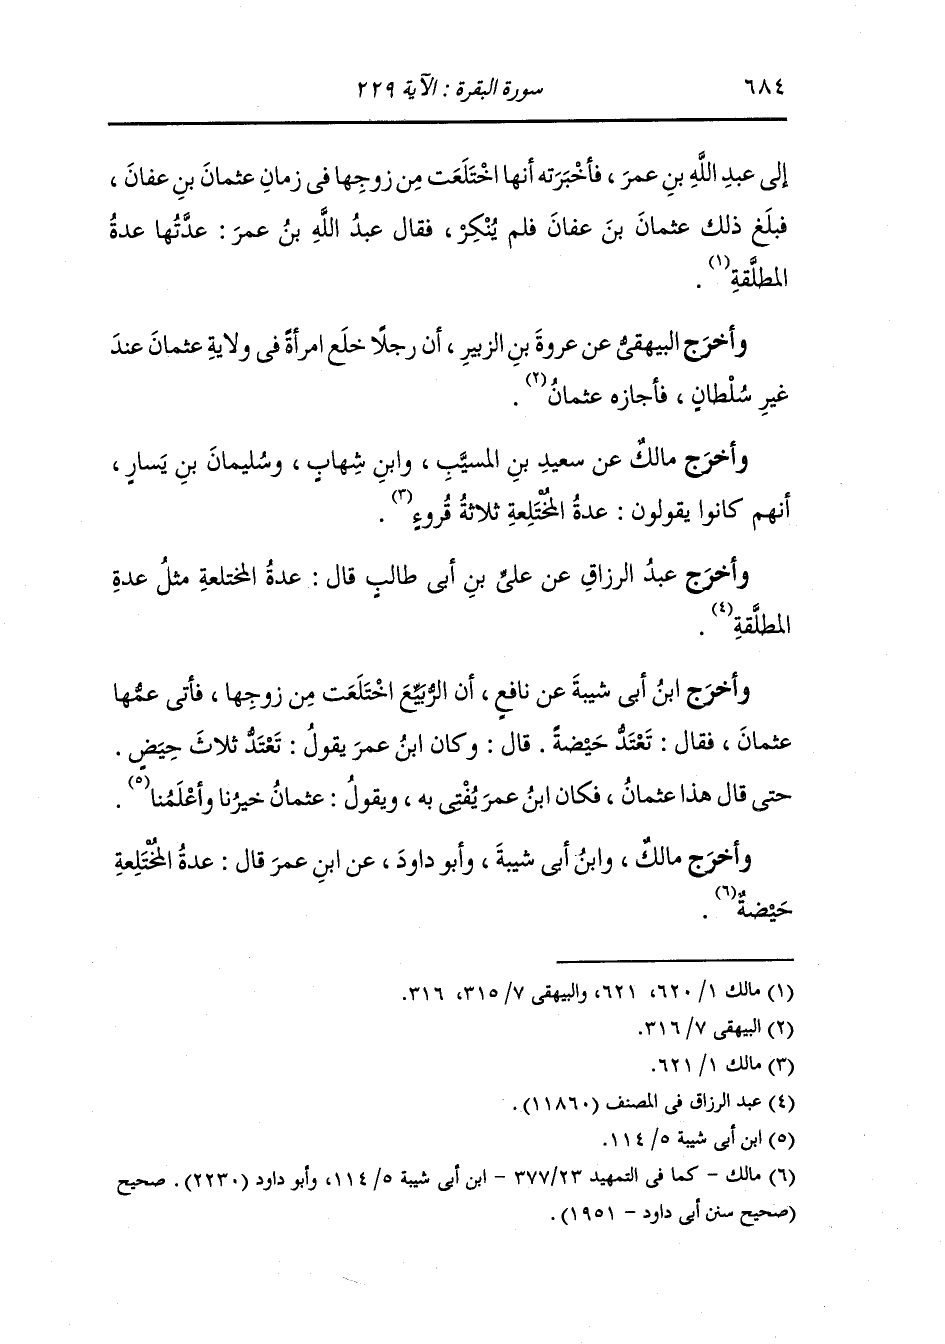 ٦٨٤ سورة البقرة : الآية ٢٢٩
إلى عبدِ اللَّهِ بنِ عمرَ ، فأخْبَرَته أنها اخْتَلَعَت مِن زوجِها فى زمانِ عثمانَ بنِ عفانَ ،
فبلَغ ذلك عثمانَ بنَ عفانَ فلم يُنْكِرْ ، فقال عبدُ اللَّهِ بنُ عمرَ : عدَّتُها عدةُ
المطلَّقةِ(١) .
وأخرَج البيهقىُّ عن عروةَ بنِ الزبيرِ ، أن رجلًا خلَع امرأةً فى ولايةِ عثمانَ عندَ
غيرِ سُلْطانٍ ، فأجازه عثمانُ(٢) .
وأخرَج مالكٌ عن سعيدِ بنِ المسيَّبِ ، وابنِ شِهابٍ ، وسُليمانَ بنِ يَسارٍ ،
أنهم كانوا يقولون : عدةُ المُخْتَلِعةِ ثلاثةُ قُروءٍ(٣) .
وأخرَج عبدُ الرزاقِ عن علىِّ بنِ أبى طالبٍ قال : عدةُ المختلعةِ مثلُ عدةِ
المطلَّقةِ(٤) .
وأخرَج ابنُ أبى شيبةَ عن نافعٍ ، أن الرُّبَيِّعَ اخْتَلَعَت مِن زوجِها ، فأتى عمُّها
عثمانَ ، فقال : تَعْتَدُّ حَيْضةً . قال : وكان ابنُ عمرَ يقولُ : تَعْتَدُّ ثلاثَ حِيَضٍ .
حتى قال هذا عثمانُ ، فكان ابنُ عمرَ يُفْتِى به ، ويقولُ : عثمانُ خيرُنا وأعْلَمُنا(٥) .
وأخرَج مالكٌ ، وابنُ أبى شيبةَ ، وأبو داودَ ، عن ابنِ عمرَ قال : عدةُ المُخْتَلِعةِ
حَيْضةٌ(٦) .
(١) مالك ١/ ٦٢٠، ٦٢١، والبيهقى ٧/ ٣١٥، ٣١٦.
(٢) البيهقى ٧/ ٣١٦.
(٣) مالك ١/ ٦٢١.
(٤) عبد الرزاق فى المصنف (١١٨٦٠).
(٥) ابن أبى شيبة ٥/ ١١٤.
(٦) مالك - كما فى التمهيد ٢٣/ ٣٧٧ - ابن أبى شيبة ٥/ ١١٤، وأبو داود (٢٢٣٠). صحيح
(صحيح سنن أبى داود - ١٩٥١).